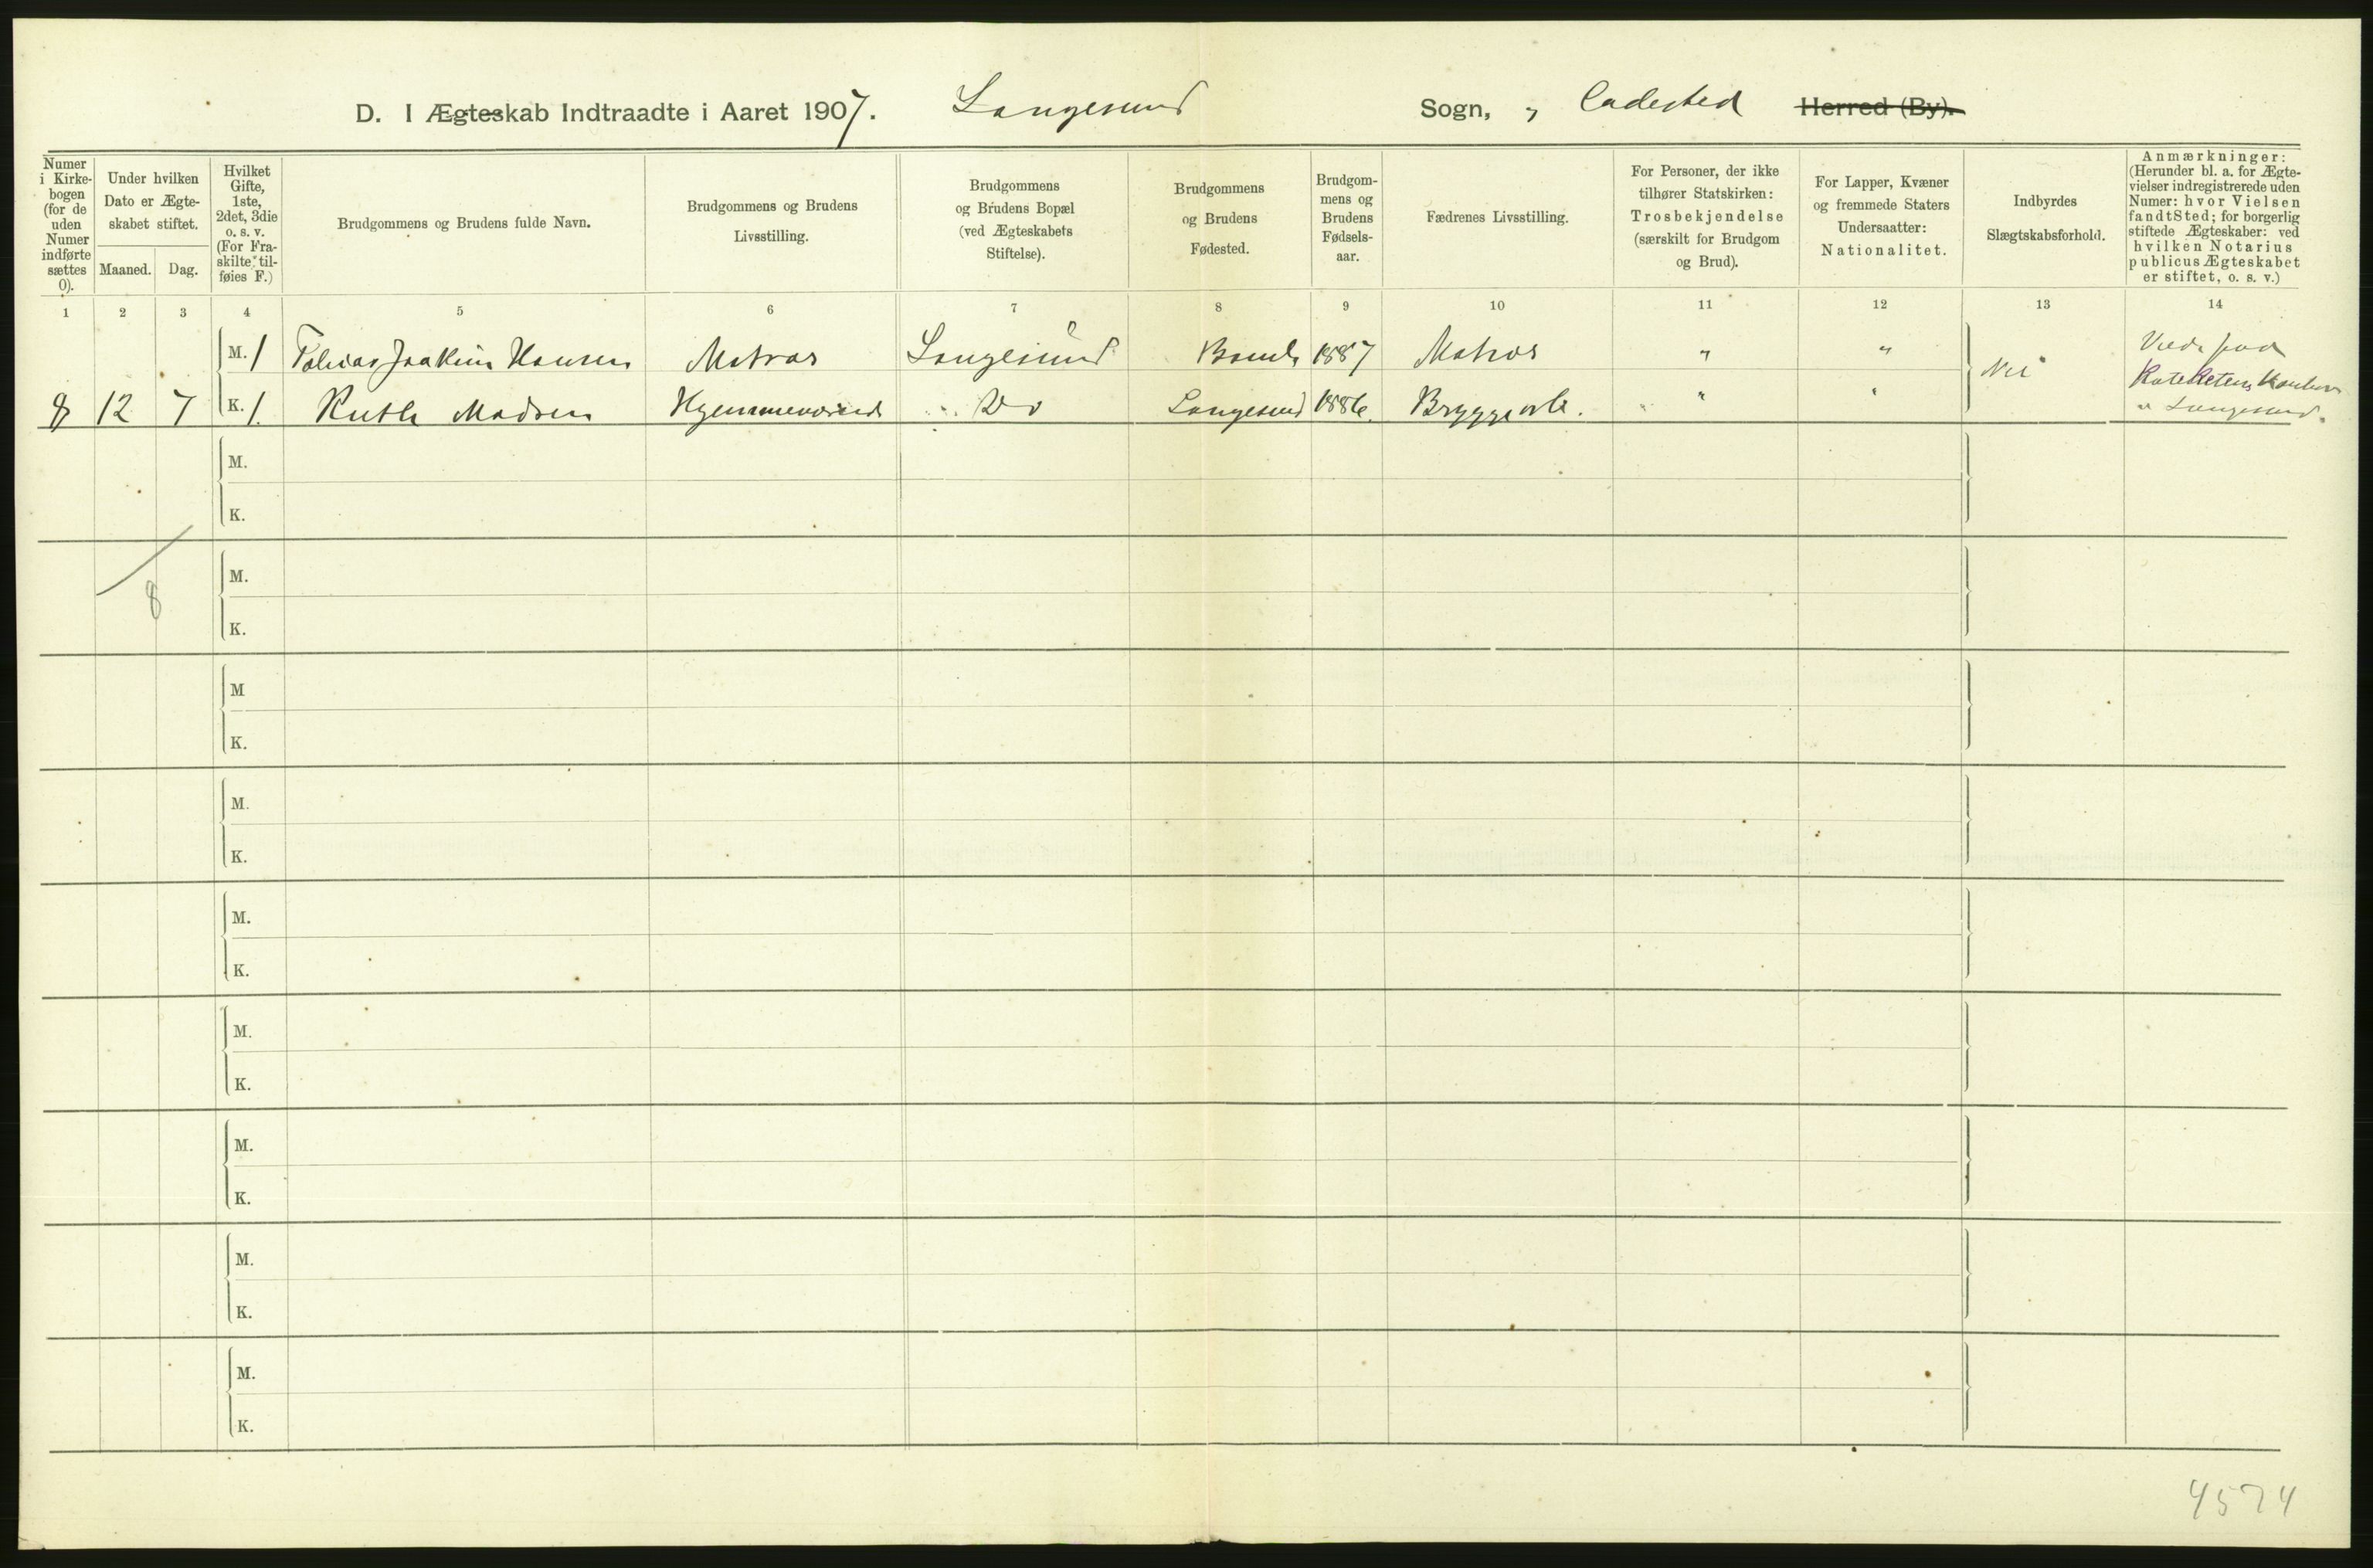 D. I Ægteskab Indtraadte i Aaret 1907. Langesund Sogn, „ Ladested Herred (By).
Numer i Kirkebogen (for de uden Numer indførte sættes 0).
Under hvilken Dato er Ægteskabet stiftet.
Maaned. Dag.
Hvilket Gifte, 1ste, 2det, 3die o. s. v. (For Fraskilte tilføies F.)
Brudgommens og Brudens fulde Navn.
Brudgommens og Brudens Livsstilling.
Brudgommens og Brudens Bopæl (ved Ægteskabets Stiftelse).
Brudgommens og Brudens Fødested.
Brudgommens og Brudens Fødselsaar.
Fædrenes Livsstilling.
For Personer, der ikke tilhører Statskirken: Trosbekjendelse (særskilt for Brudgom og Brud).
For Lapper, Kvæner og fremmede Staters Undersaatter: Nationalitet.
Indbyrdes Slægtskabsforhold.
Anmærkninger: (Herunder bl. a. for Ægtevielser indregistrerede uden Numer: hvor Vielsen fandt Sted; for borgerlig stiftede Ægteskaber: ved hvilken Notarius publicus Ægteskabet er stiftet, o. s. v.)
1 2 3 4 5 6 7 8 9 10 11 12 13 14
M. 1 Tobias Joakim Hansen Matros Langesund Bamle 1887 Matros „ „ Nei Viede paa
Kateketens Kontor
8 12 7 K. 1. Ruth Madsen Hjemmeværend Do Langesund 1886. Bryggearb. „ „ „ Langesund.
M.
K.
M.
8
K.
M
K.
M.
K.
M.
K.
M.
K.
M.
K.
M.
K.
M.
K.
4574